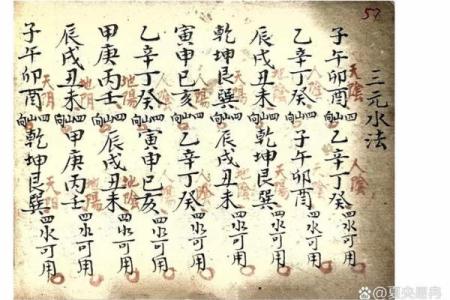 三元水法
子午卯酉四山向乙辛丁癸四水可用
天陰
人陰
乙辛丁癸四山向子午卯酉四水可用
人陰
辰戌丑未四山向乾坤艮巽四水可用
地陰
乾坤艮巽四山向辰戌丑未四水可用
天陽
寅申巳亥四山向乙辛丁癸四水可用
人陽
乙辛丁癸四山向寅申巳亥四水可用
人陰
甲庚丙壬四山向辰戌丑未四水可用
地陽
辰戌丑未四山向甲庚丙壬四水可用
地陰
子午卯酉四山向乾坤艮巽四水可用
天陰